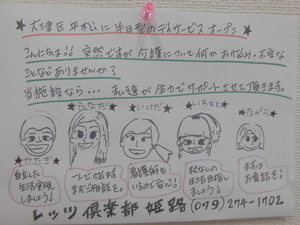 ★大津区平松に半日型のデイサービスオープン★
こんにちは!! 突然ですが介護について何かお悩み・不安な
ことなどありませんか?
当施設なら… 私達が全力でサポートさせて頂きます。
★かたぎ★
★ふなだ★
★いけだ★
★いちもと★
★ながら★
自立した
生活実現
しましょう!
一人で悩まず
まずご相談を。
看護師も
いるので安心!
杖なしの
生活実現
しましょう!
まずは
お電話を!
レッツ倶楽部 姫路 (079)274-1702